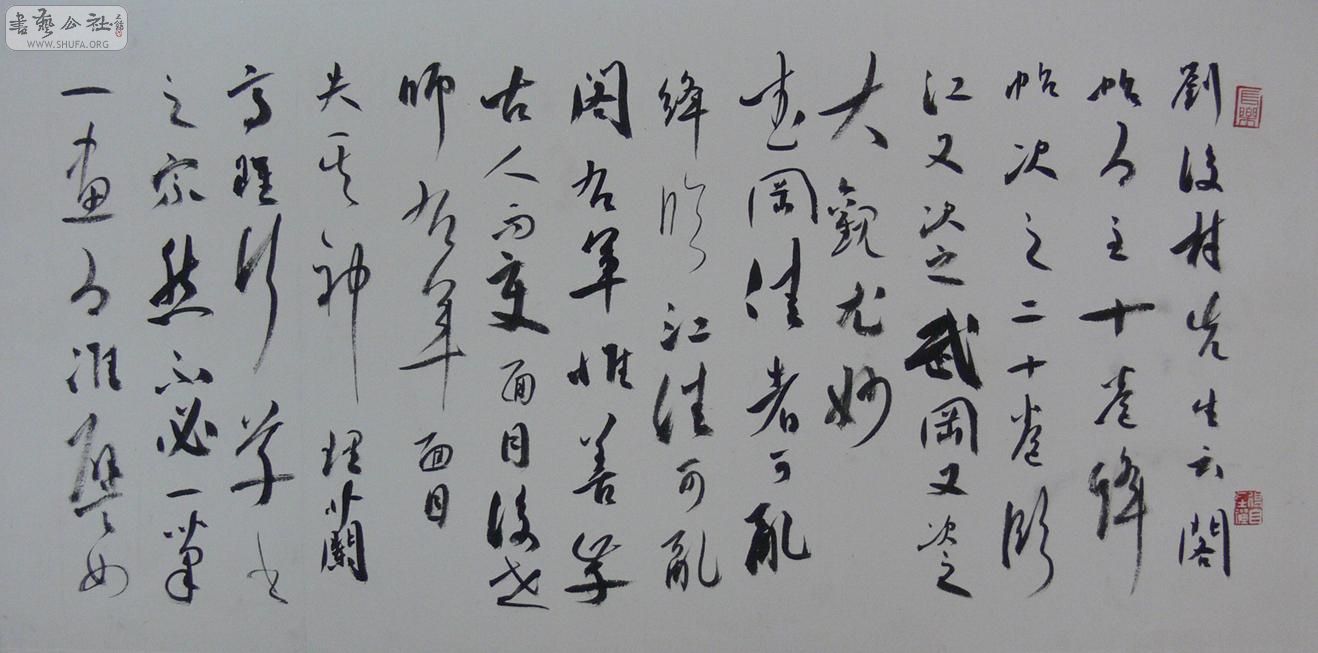 書藝公社
WWW.SHUFA.ORG
長樂
劉後村先生云閣
帖為主十卷絳
帖次之二十卷臨
江又次之武岡又次之
大觀尤妙
武岡佳者可亂
絳臨江佳可亂
閣右軍惟善學
古人而變面目後世
師右軍面目
失其神理蘭
亭雖行草
之宗然不必一筆
一畫為准譬如